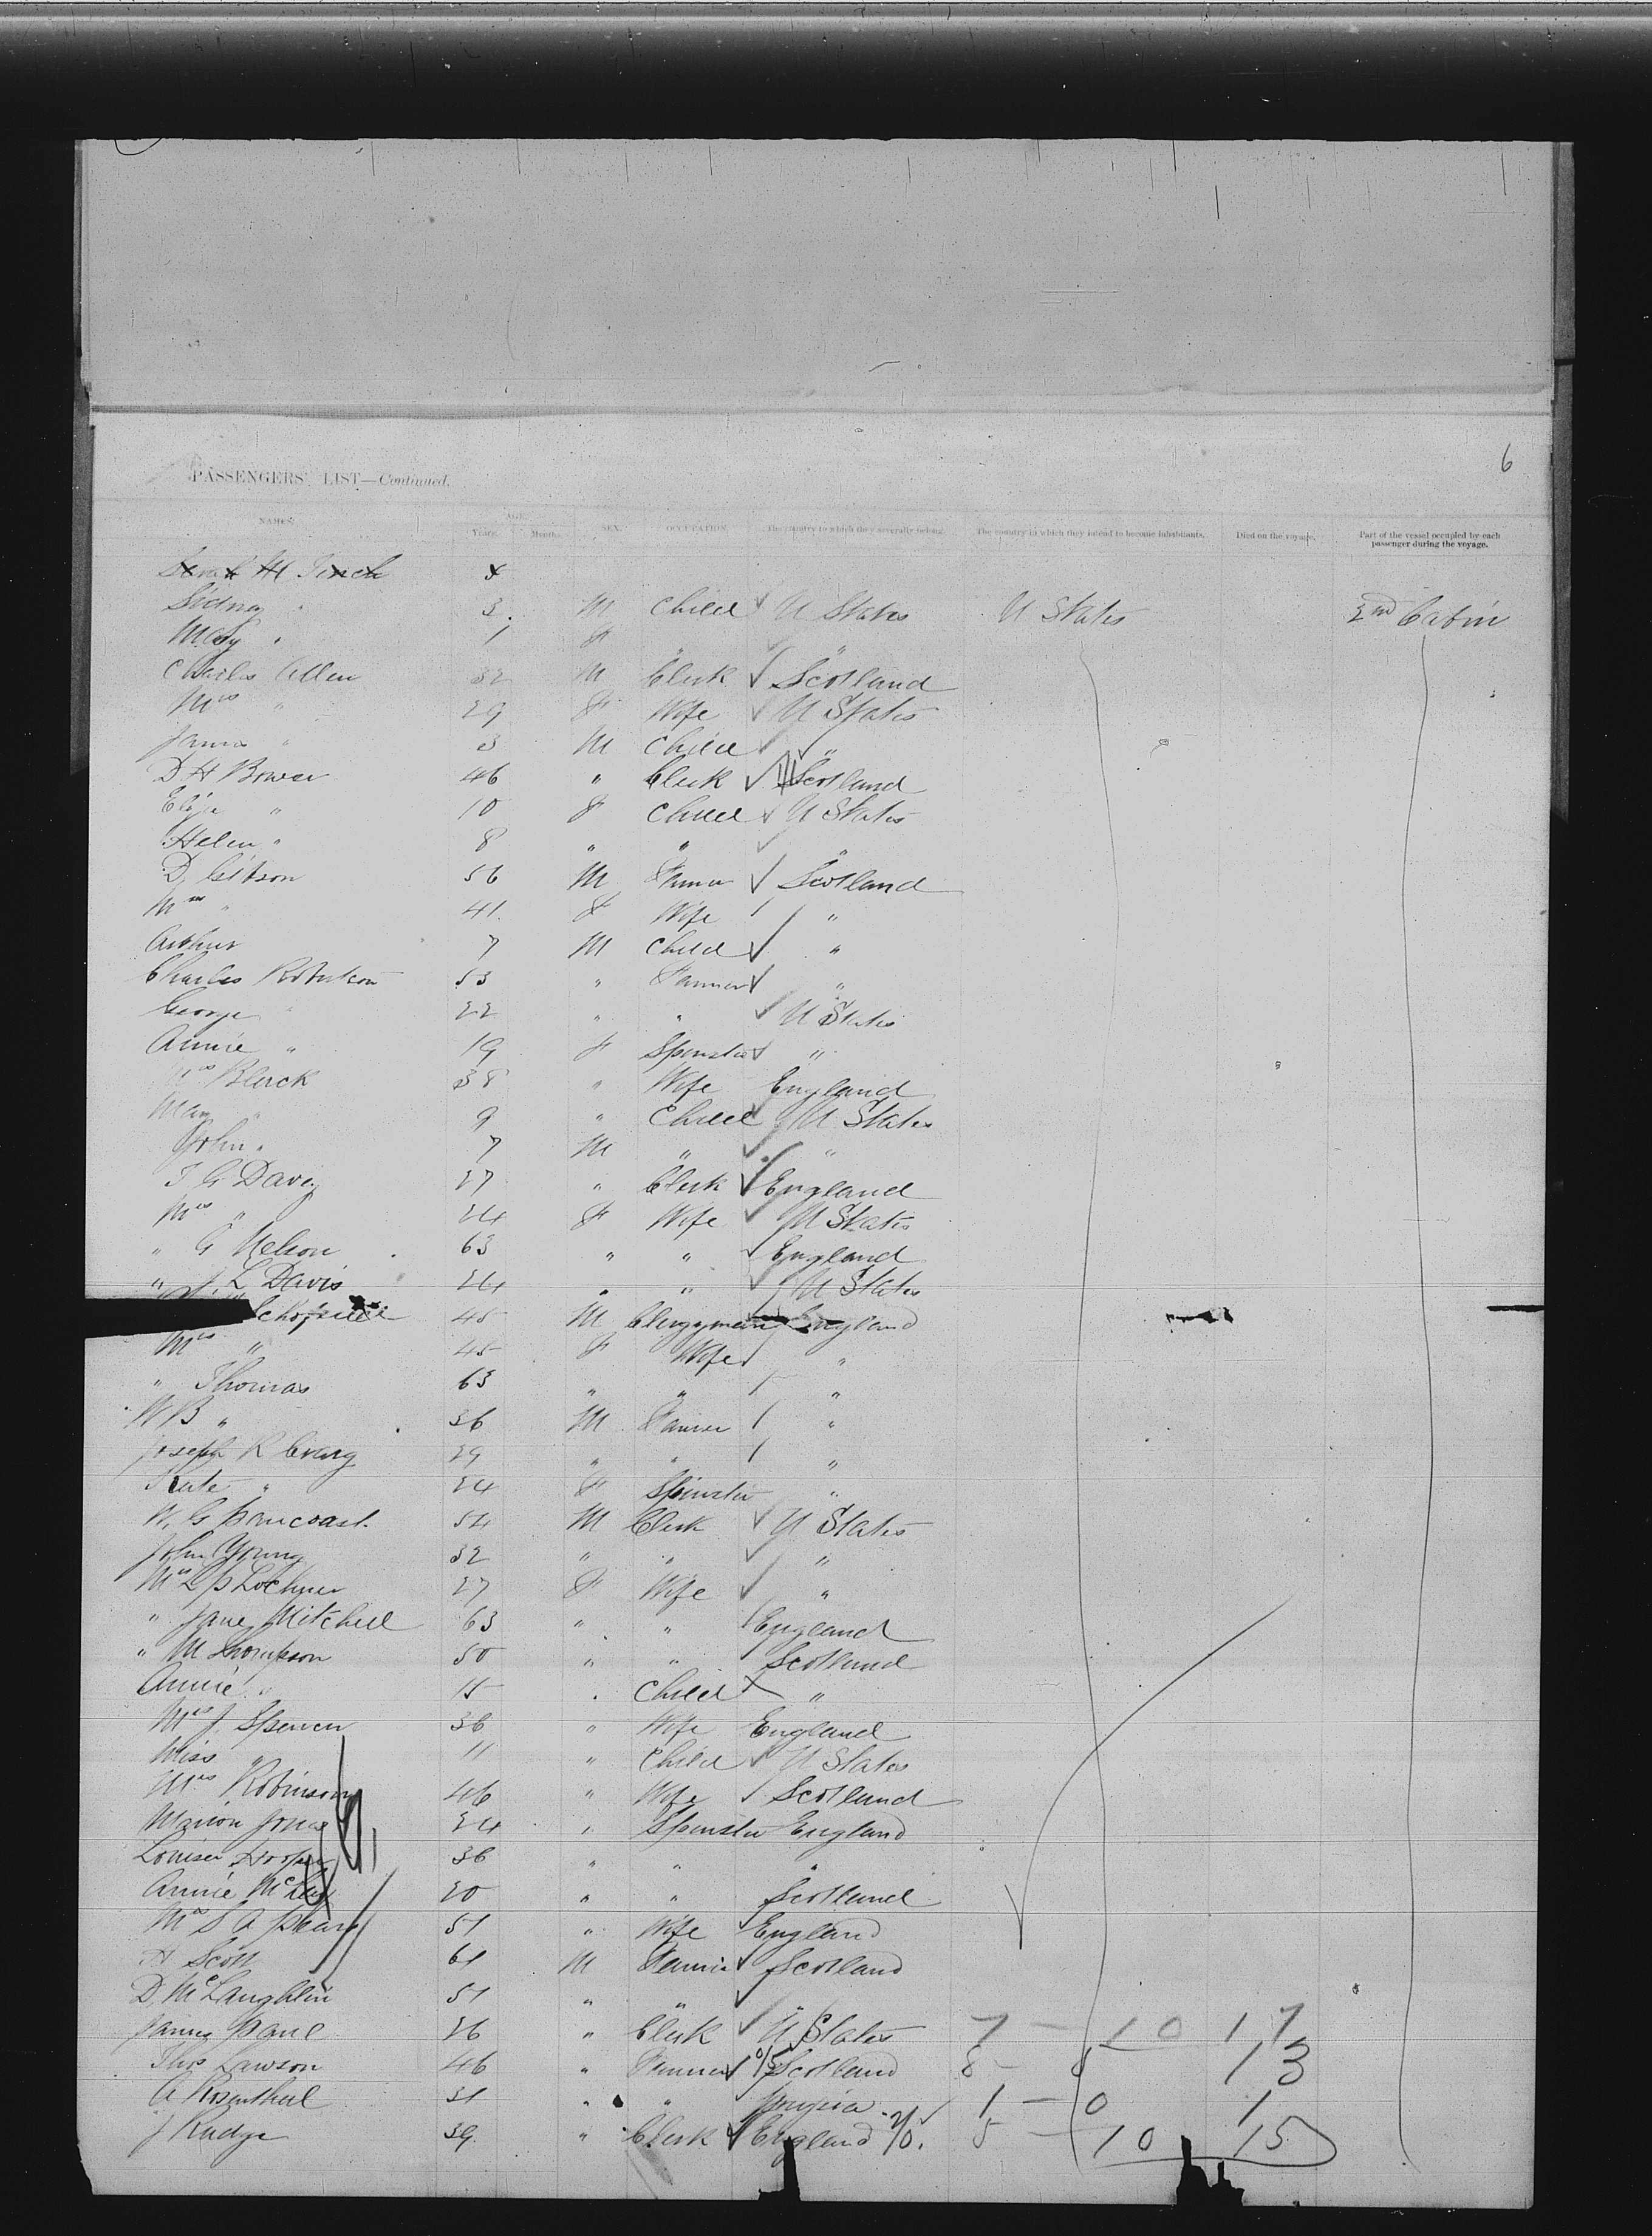 6
PASSENGERS' LIST—Continued.
NAMES. AGE. Years. Months. SEX. OCCUPATION. The country to which they severally belong. The country in which they intend to become inhabitants. Died on the voyage. Part of the vessel occupied by each passenger during the voyage.
Sarah M Finch
Sidney " 3 M Child U States U States 2nd Cabin
Mary " 1 F " "
Charles Allen 32 M Clerk Scotland
Mrs " 29 F Wife U States
James " 3 M Child "
D H Bowser 46 " Clerk Scotland
Eliza " 10 F Child U States
Helen " 8 " " "
D. Gibson 56 M Farmer Scotland
Mrs " 41 F Wife "
Arthur 7 M Child "
Charles Robertson 53 " Farmer "
George " 22 " " U States
Annie " 19 F Spinster "
Mrs Black 38 " Wife England
Mary " 9 " Child U States
John " 7 M " "
T G Davy 27 " Clerk England
Mrs " 24 F Wife U States
" G Nelson 63 " " England
" J. L Davis 24 " " U States
45 M Clergyman England
Mrs " 45 F Wife "
" Thomas 63 " " "
W B " 36 M Farmer "
Joseph R Craig 29 " " "
Kate " 24 F Spinster "
W. G Pancoast 54 M Clerk U States
John Young 32 " " "
Mrs L P Lochner 27 F Wife "
" Jane Mitchell 63 " " England
" M Thompson 50 " " Scotland
Annie " 15 " Child "
Mrs J. Spencer 36 " Wife England
Miss " 11 " Child U States
Mrs Robinson 46 " Wife Scotland
Marion Jones 24 " Spinster England
Louisa Hooper 36 " " "
Annie 20 " " Scotland
Mrs S A 51 " Wife England
H Scott 61 M Farmer Scotland
D. McLaughlin 51 " " "
James Paul 26 " Clerk U States 7 — 10 17
Thos Lawson 46 " Farmer Scotland 8 — 13
A Rosenthal 31 " " 1 — 0 1
J Rudge 39 " Clerk England 5 — 10 15